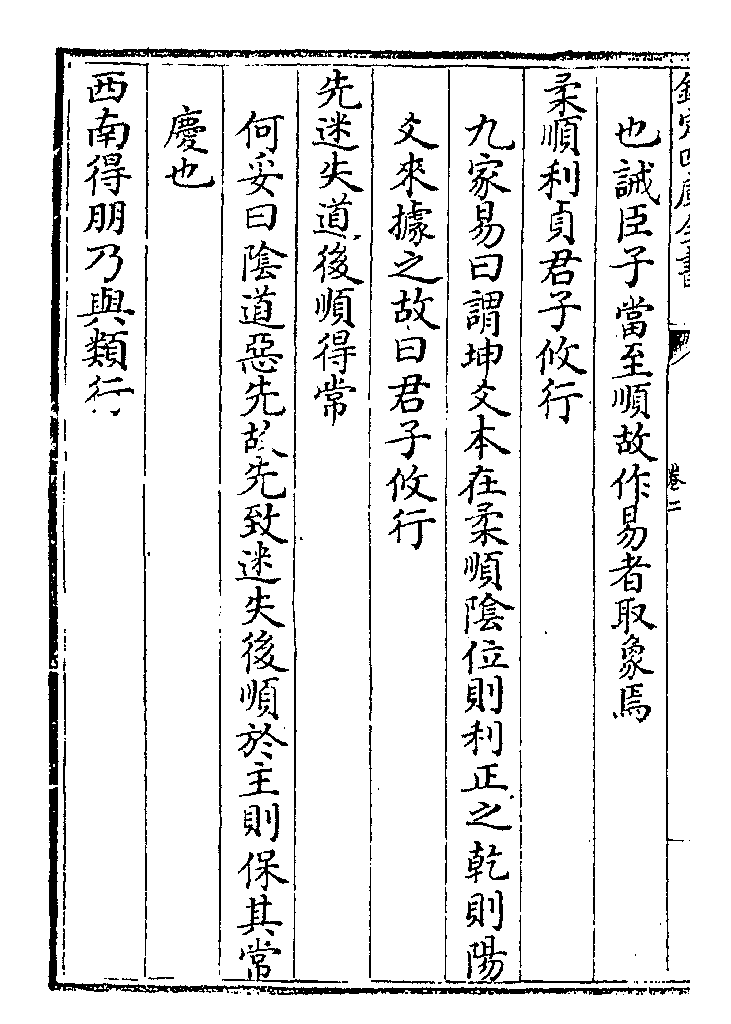 欽定四庫全書
卷二
也誡臣子當至順故作易者取象焉
柔順利貞君子攸行
九家易曰謂坤爻本在柔順隂位則利正之乾則陽
爻來據之故曰君子攸行
先迷失道後順得常
何妥曰隂道惡先故先致迷失後順於主則保其常
慶也
西南得朋乃與類行